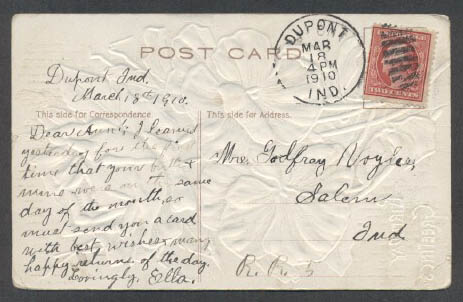 POST CARD
DUPONT
MAR
18
4 PM
1910
IND.
Dupont Ind.
March 18th 1910.
This side for Correspondence.
This side for Address.
Dear Aunt: I learned
yesterday for the first
time that your birth &
mine were on same
day of the month, so
must send you a card
with best wishes & many
happy returns of the day.
Lovingly, Ella.
Mrs. Godfray
Salem
Ind
R.R. 5
TWO CENTS